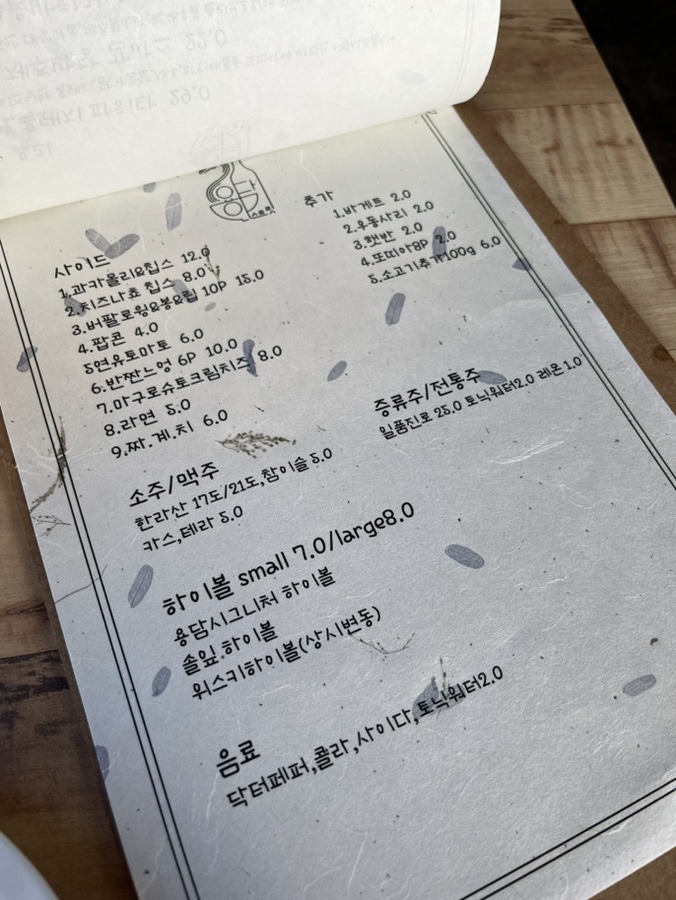 용담
스트릿
사이드
1.과카몰리&칩스 12.0
2.치즈나쵸 칩스 8.0
3.버팔로윙&봉&립 10P 15.0
4.팝콘 4.0
5연유토마토 6.0
6.반짠느엉 6P 10.0
7.마구로슈토크림치즈 8.0
8.라면 5.0
9.짜.계.치 6.0
추가
1.바게트 2.0
2.우동사리 2.0
3.햇반 2.0
4.또띠아8P 2.0
5.소고기추가100g 6.0
증류주/전통주
일품진로 25.0 토닉워터2.0 레몬 1.0
소주/맥주
한라산 17도/21도,참이슬 5.0
카스,테라 5.0
하이볼 small 7.0/large8.0
용담시그니처 하이볼
솔잎.하이볼
위스키하이볼(상시변동)
음료
닥터페퍼,콜라,사이다,토닉워터2.0